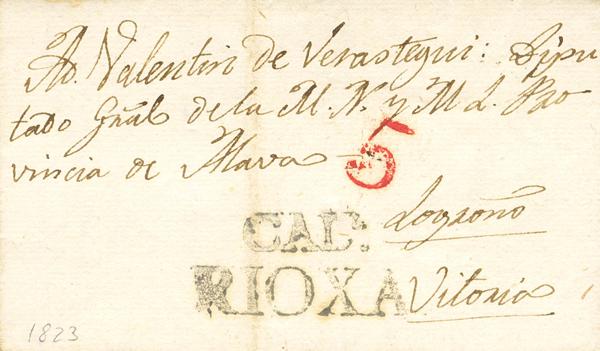 A D. Valentin de Verastegui: Dipu
tado Gral de la M. N. y M. L. Pro
vincia de Alava
5
Logroño
CAL.ª
RIOXA
Vitoria
1823